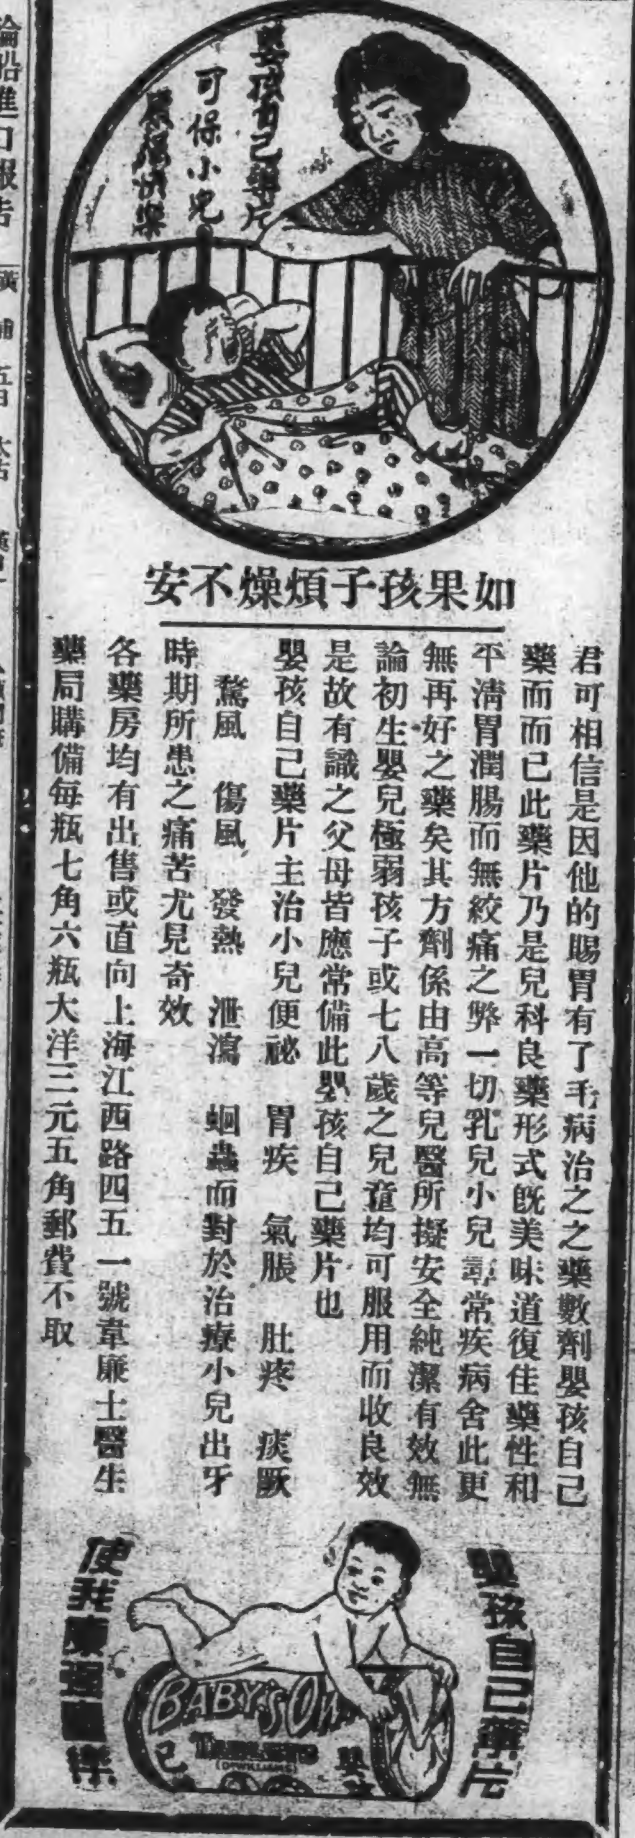 嬰孩自己藥片
可保小兒
康強快樂
如果孩子煩燥不安
君可相信是因他的腸胃有了毛病治之之藥數劑嬰孩自己
藥而而已此藥片乃是兒科良藥形式旣美味道復佳藥性和
平淸胃潤腸而無絞痛之弊一切乳兒小兒尋常疾病舍此更
無再好之藥矣其方劑係由高等兒醫所擬安全純潔有效無
論初生嬰兒極弱孩子或七八歲之兒童均可服用而收良效
是故有識之父母皆應常備此嬰孩自己藥片也
嬰孩自己藥片主治小兒便祕 胃疾 氣脹 肚疼 痰厥
驚風 傷風 發熱 泄瀉 蛔蟲而對於治療小兒出牙
時期所患之痛苦尤見奇效
各藥房均有出售或直向上海江西路四五一號韋廉士醫生
藥局購備每瓶七角六瓶大洋三元五角郵費不取
嬰孩自己藥片
BABY'S OWN
TABLETS
(DR WILLIAMS)
使我康強快樂
輪船進口報告